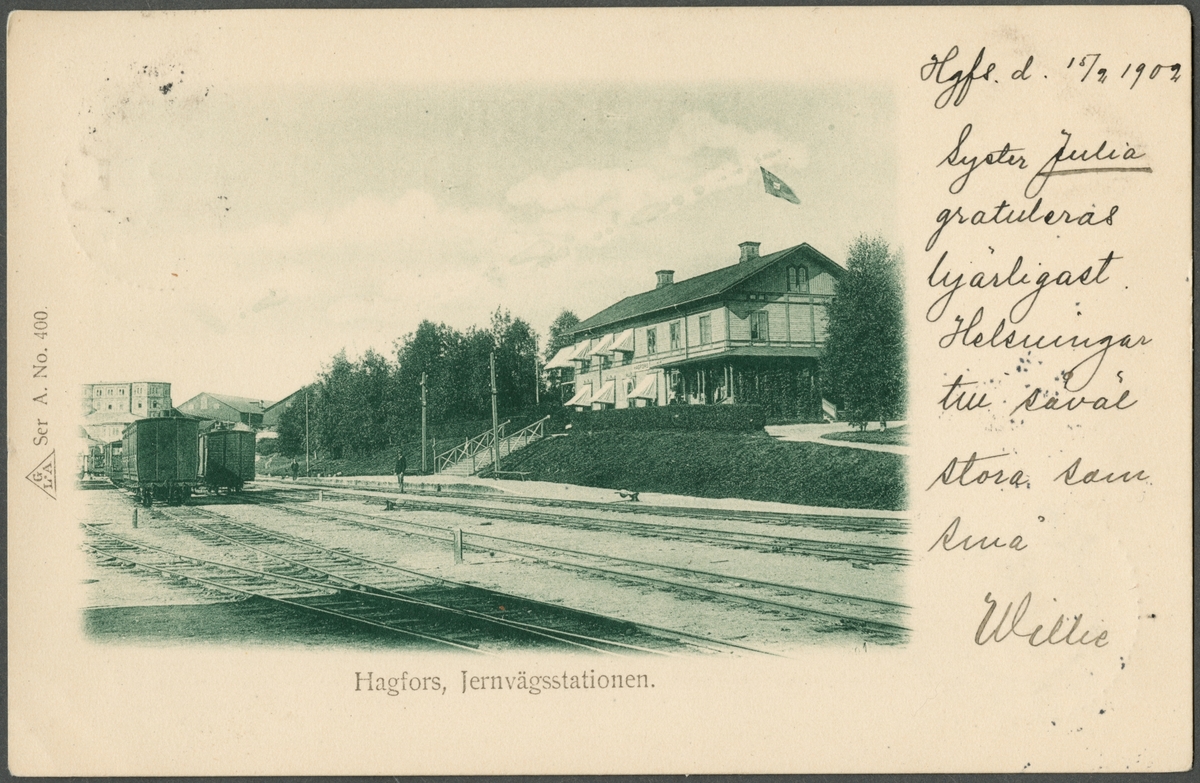 Hgfs. d. 15/2 1902
Syster Julia
gratuleras
hjärligast.
Helsningar
till såväl
stora som
små
Willie
Hagfors, Jernvägsstationen.
G
L A Ser A. No. 400.